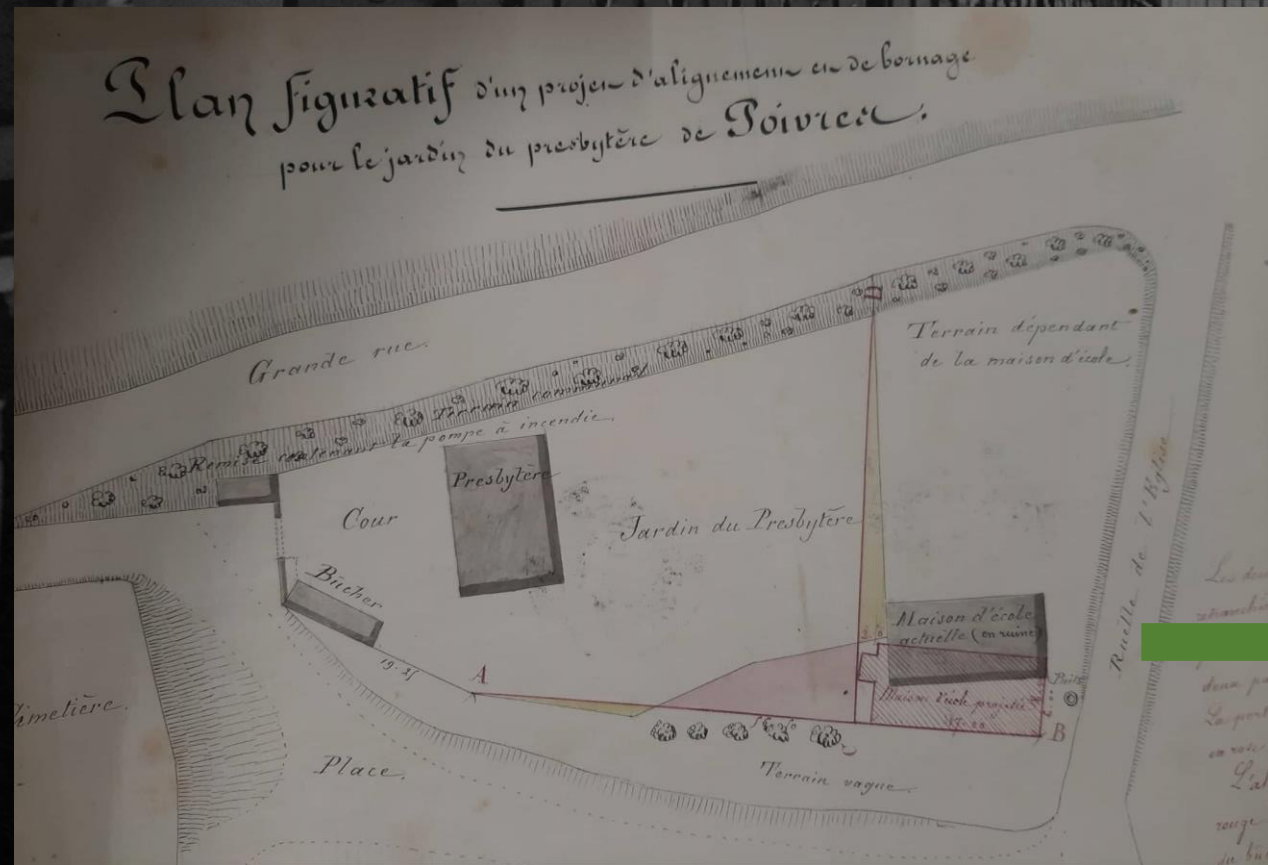 Plan figuratif d'un projet d'alignement et de bornage
pour le jardin du presbytère de Poivres.
Grande rue.
Terrain communal
Remise contenant la pompe à incendie.
Terrain dépendant
de la maison d'école.
Presbytère
Cour
Jardin du Presbytère
Bûcher
Ruelle de l'Eglise
Maison d'école
actuelle (en ruine)
A
Maison d'école projetée
Puits
B
Cimetière.
Place.
Terrain vague.
Les deux
deux
La
en
rouge